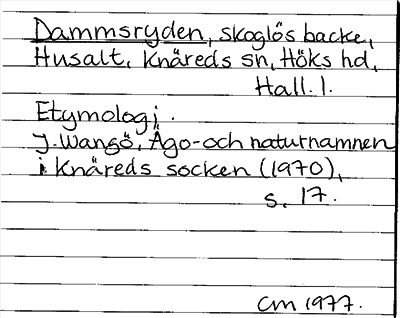 Dammsryden, skoglös backe,
Husalt, Knäreds sn, Höks hd,
Hall. l.
Etymologi.
J. Wangö, Ägo- och naturnamnen
i Knäreds socken (1970),
s. 17.
cm 1977.